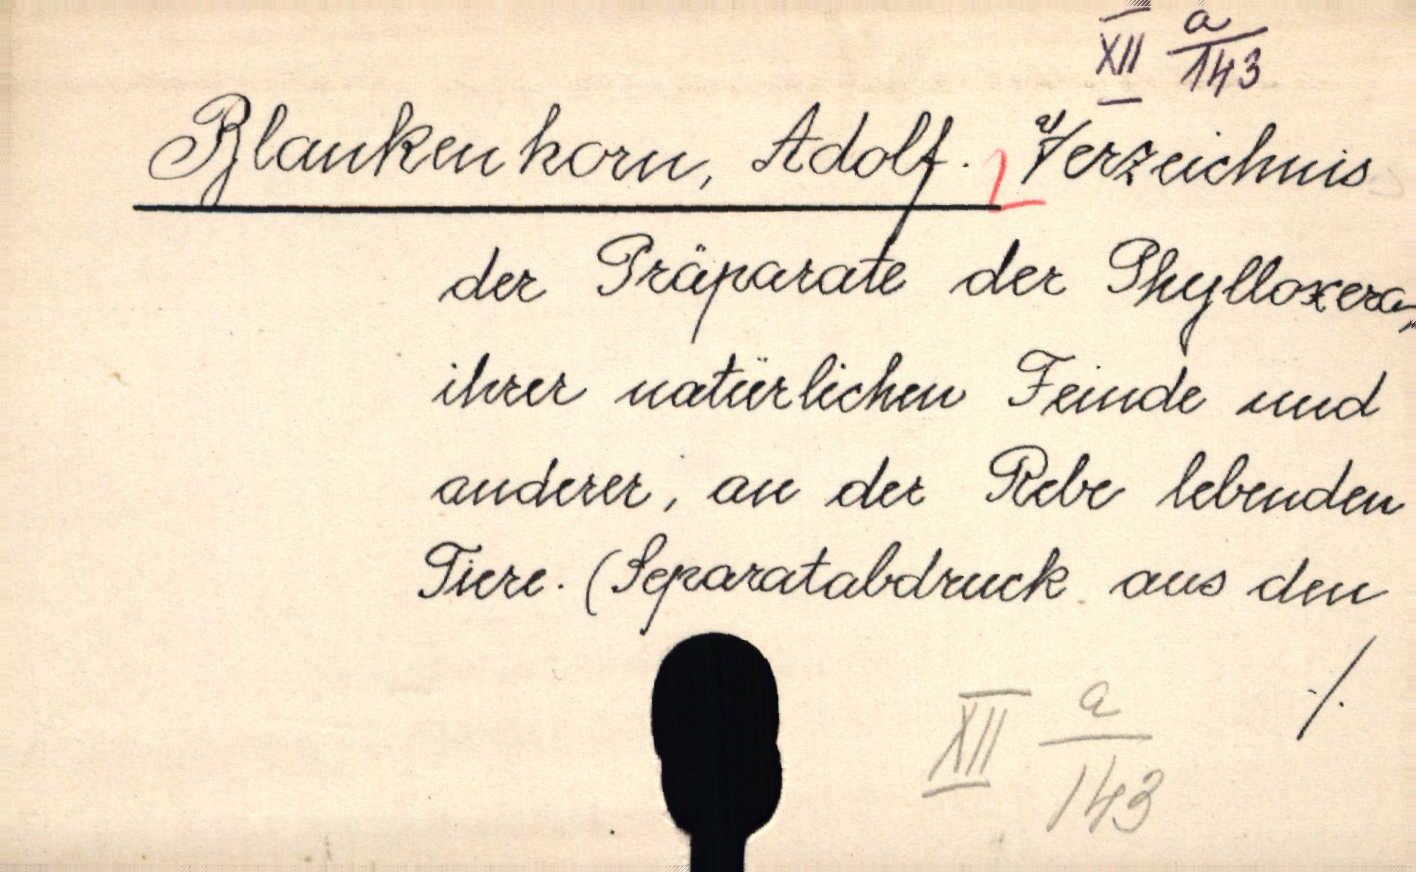 XII a/143
Blankenhorn, Adolf. Verzeichnis
der Präparate der Phylloxera,
ihrer natürlichen Feinde und
anderer, an der Rebe lebenden
Tiere. (Separatabdruck aus den
./.
XII a/143